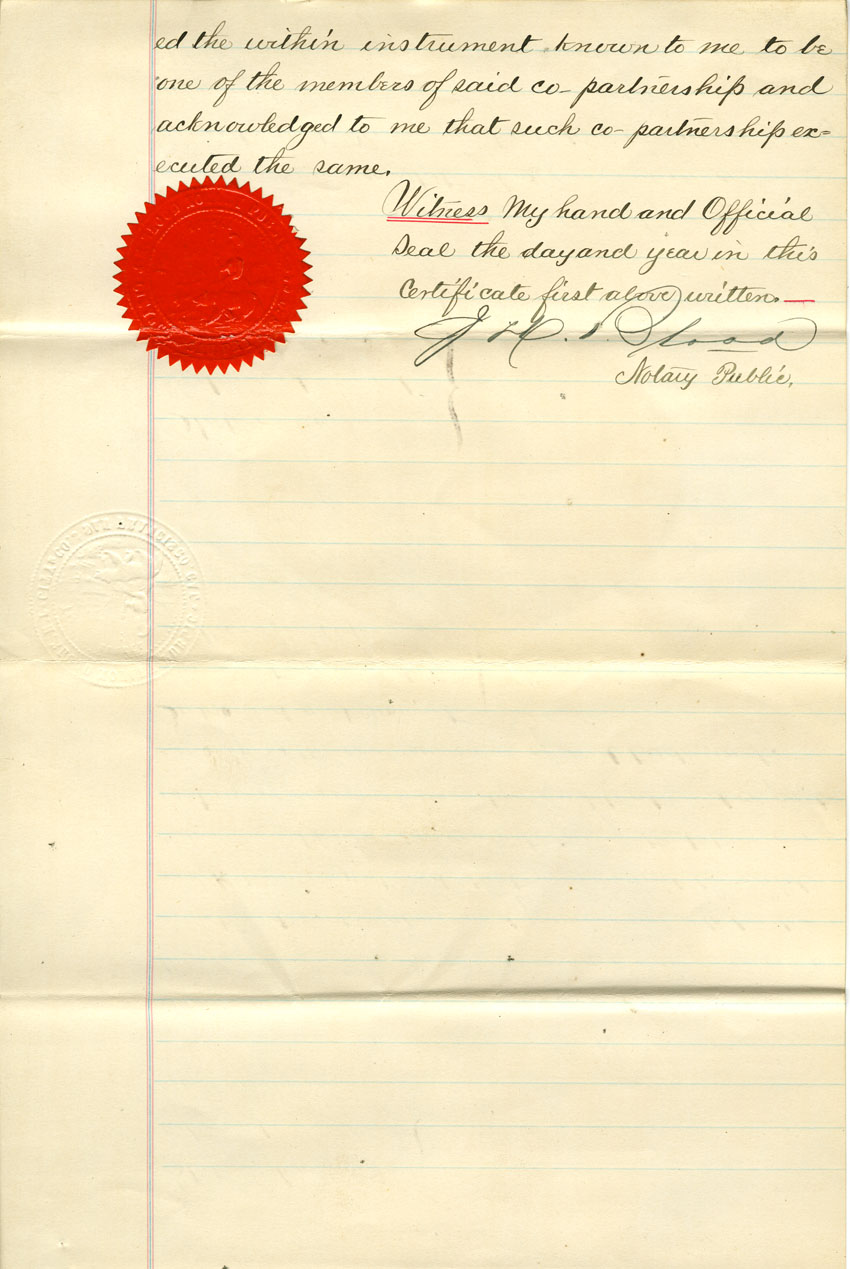 ed the within instrument known to me to be
one of the members of said co-partnership and
acknowledged to me that such co-partnership ex=
ecuted the same.
Witness My hand and Official
Seal the day and year in this
Certificate first above written.
Notary Public.